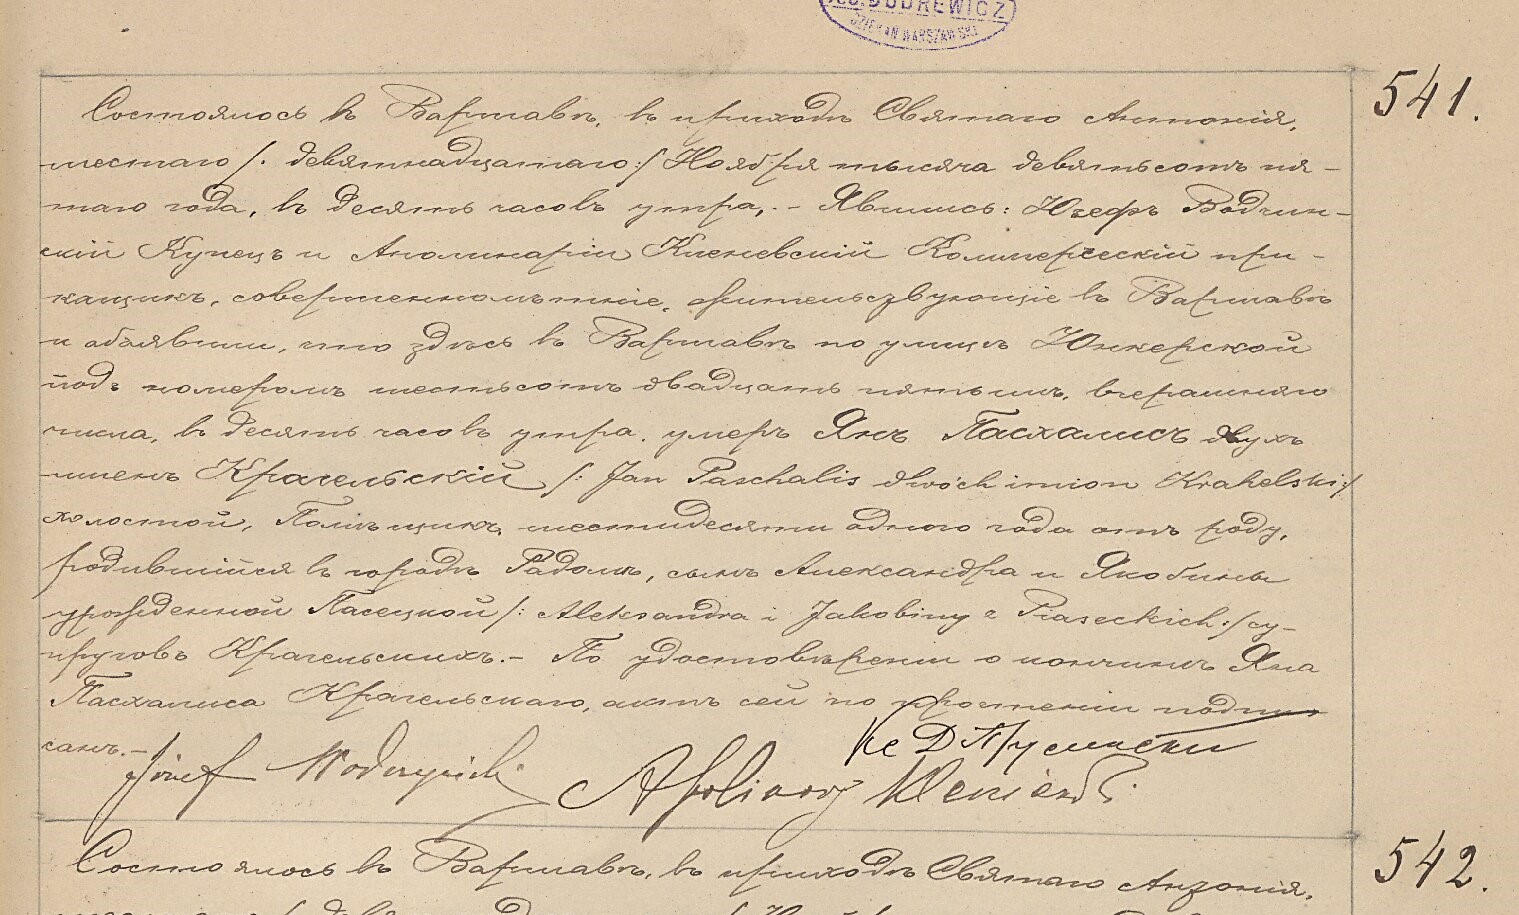 KS. DUDREWICZ
DZIEKAN WARSZAWSKI
541.
Состоялось въ Варшавѣ, въ приходѣ Святаго Антонія,
шестаго /: девятнадцатаго :/ Ноября тысяча девятьсотъ пя-
таго года, въ десять часовъ утра. - Явились: Юзефъ Водчин-
скій Купецъ и Аполинарій Кленевскій Коммерческій при-
кащикъ, совершеннолѣтніе, жительствующіе въ Варшавѣ
и объявили, что здѣсь въ Варшавѣ по улицѣ Юнкерской
подъ номеромъ шестьсотъ двадцать пятымъ, вчерашняго
числа, въ десять часовъ утра, умеръ Янъ Пасхалисъ двухъ
именъ Крагельскій /: Jan Paschalis dwóch imion Krahelski :/
холостой, Помѣщикъ, шестидесяти одного года отъ роду,
родившійся въ городѣ Радомѣ, сынъ Александра и Якобины
урожденной Пасецкой /: Aleksandra i Jakobiny z Piaseckich :/ су-
пруговъ Крагельскихъ. - По удостовѣреніи о кончинѣ Яна
Пасхалиса Крагельскаго, актъ сей по прочтеніи подпи-
санъ. -
Józef Wodczyński
Apolinary Kleniewski
542.
Состоялось въ Варшавѣ, въ приходѣ Святаго Антонія,